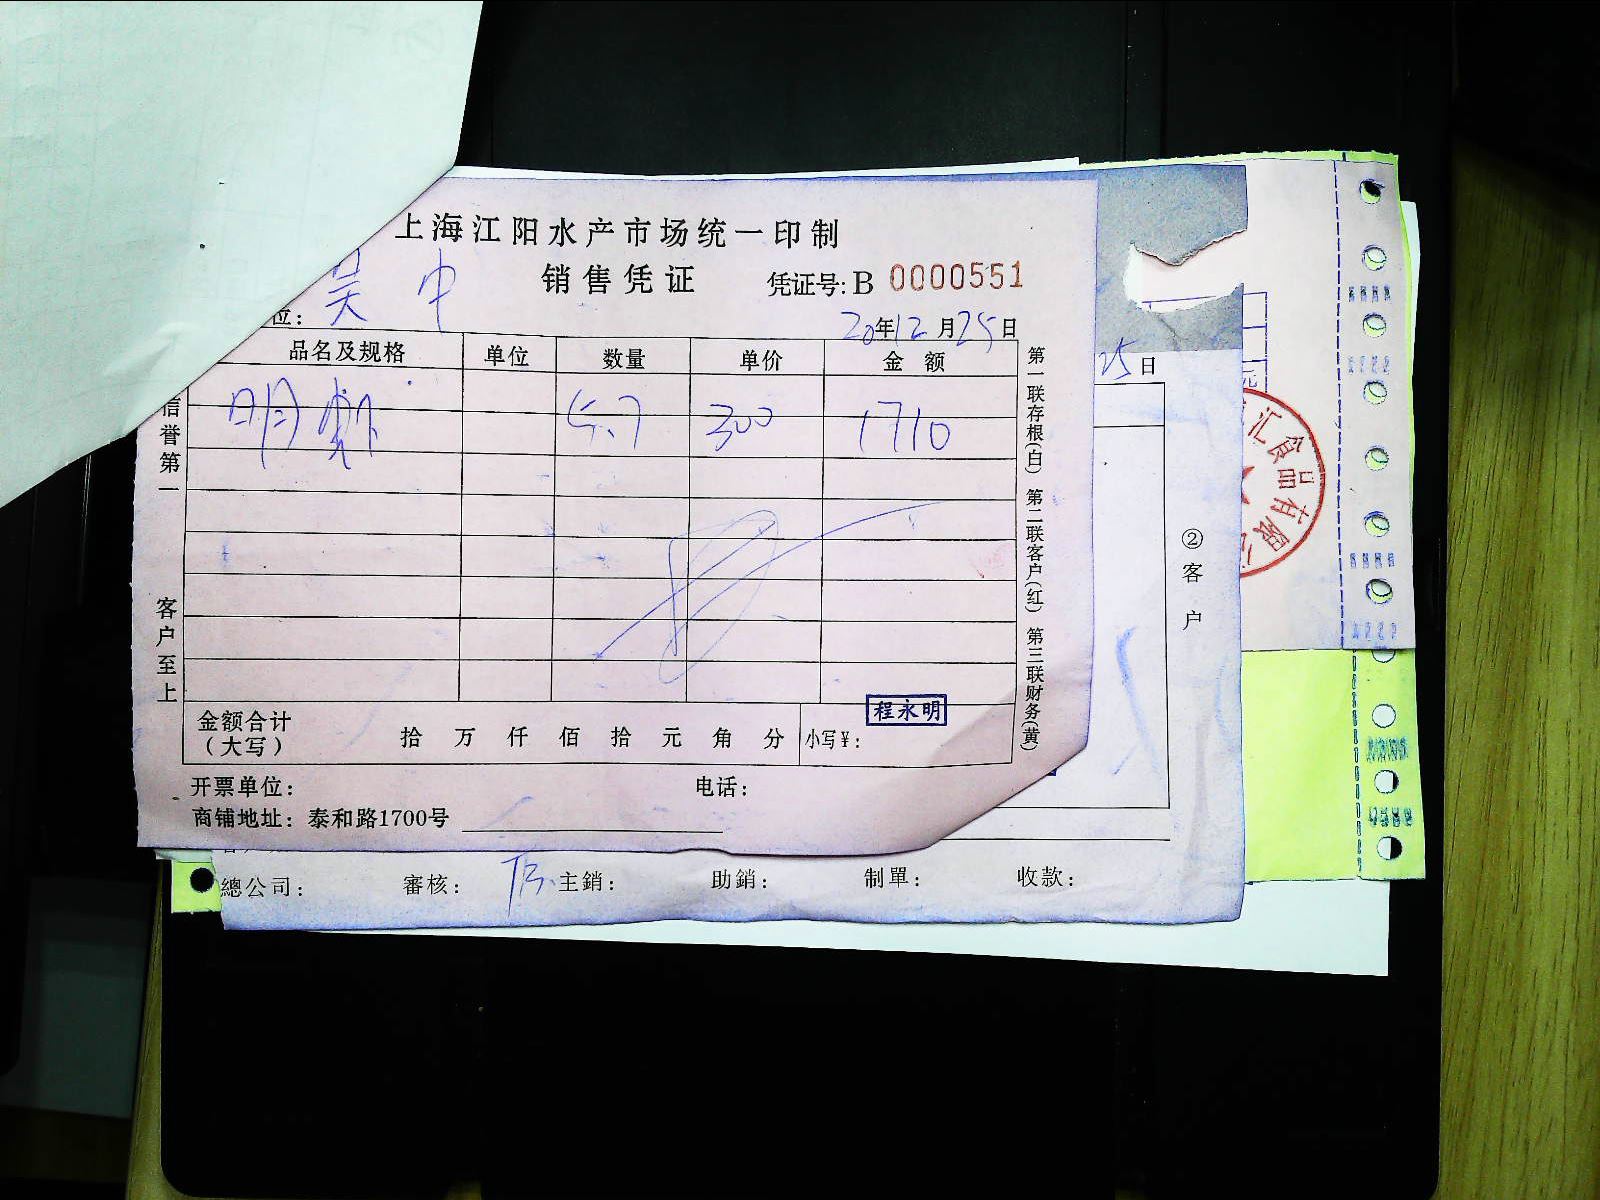 上海江阳水产市场统一印制
销售凭证 凭证号: B 0000551
位: 吴中
20年12月25日
品名及规格 单位 数量 单价 金额
明虾 5.7 300 1710
信誉第一
客户至上
第一联存根(白) 第二联客户(红) 第三联财务(黄)
金额合计
(大写)
拾 万 仟 佰 拾 元 角 分 小写¥:
程永明
开票单位: 电话:
商铺地址: 泰和路1700号
25日
②客户
總公司: 審核: 主銷: 助銷: 制單: 收款:
元
汇食品有限